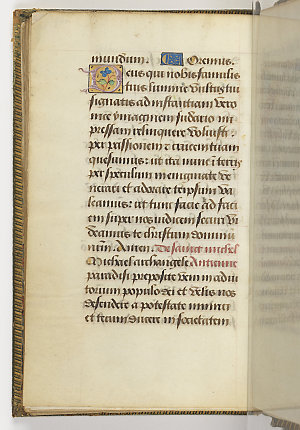 mundum. Oremus.
Deus qui nobis famulis
tuis lumine vultus tui
signatis ad instantiam vero
nice ymaginem sudario im
pressam relinquere voluisti:
per passionem et crucem tuam
quesumus: ut ita nunc in terris
per speculum in enigmate ve
nerari et adorare te ipsum va
leamus: ut tunc facie ad faci
em super nos iudicem securi vi
deamus te christum dominum
nostrum. Amen. De sainct michel
Michael archangele Antienne
paradisi preposite veni in adiu
torium populo dei et velis nos
defendere a potestate inimici
et tecum ducere in societatem